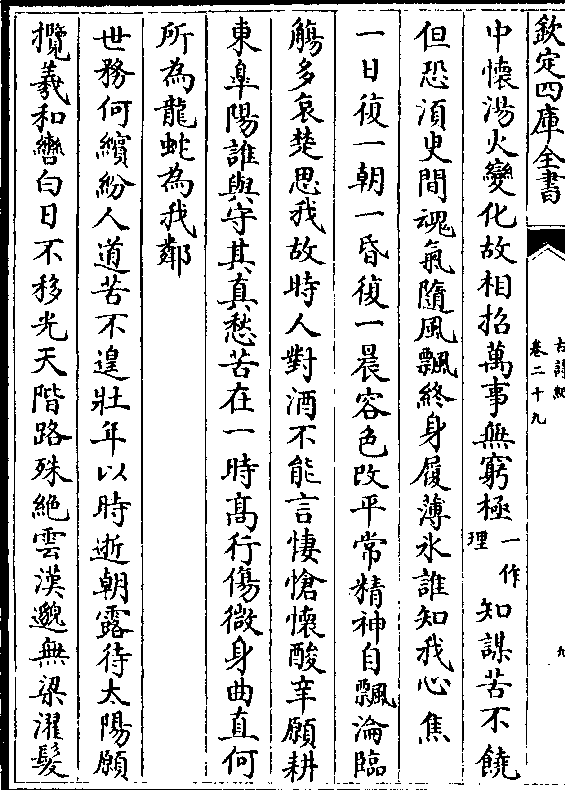 欽定四庫全書
古詩紀
卷二十九
九
中懷湯火變化故相招萬事無窮極一作理知謀苦不饒
但恐湏㬰間魂氣隨風飄終身履薄氷誰知我心焦
一日復一朝一昏復一晨容色改平常精神自飄淪臨
觴多哀楚思我故時人對酒不能言悽愴懷酸辛願耕
東臯陽誰與守其真愁苦在一時髙行傷微身曲直何
所為龍蛇為我鄰
世務何繽紛人道苦不遑壯年以時逝朝露待太陽願
攬羲和轡白日不移光天階路殊絶雲漢邈無梁濯髮